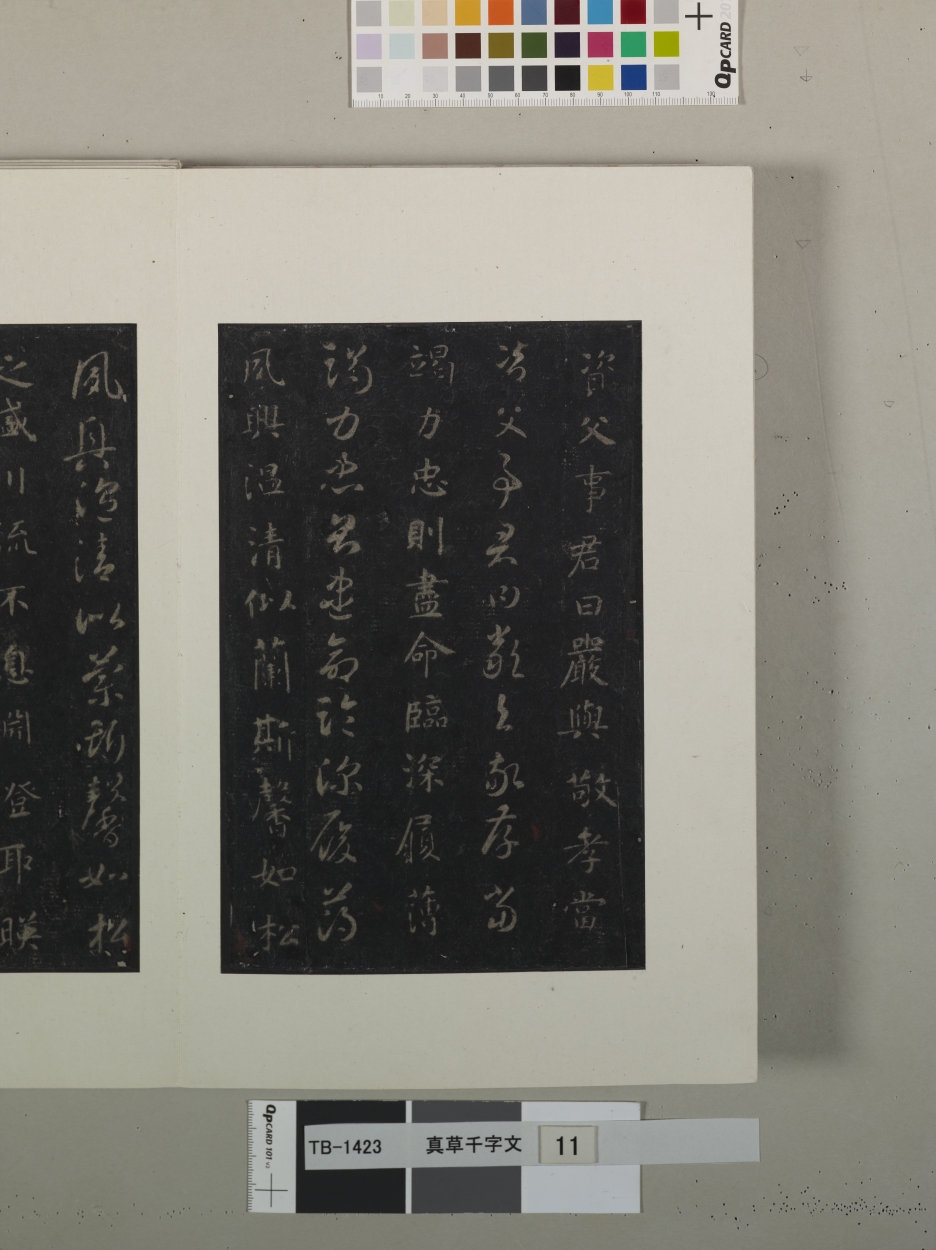 QpCARD 20
資父事君曰嚴與敬孝當
資父事君曰嚴與敬孝當
竭力忠則盡命臨深履薄
竭力忠則盡命臨深履薄
夙興温凊似蘭斯馨如松
夙興温凊似蘭斯馨如松
之盛川流不息淵澄取暎
QpCARD 101 v2
TB-1423 真草千字文 11